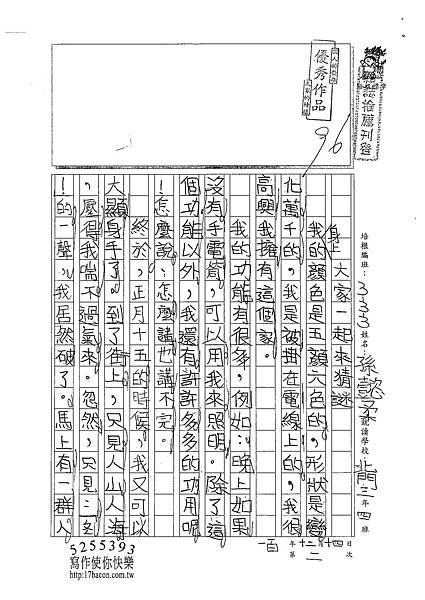 優秀作品
96
推薦刊登
培根編班：
333
姓名
孫懿柔
就讀學校：
北門
三年四班
大家一起來猜謎
我身上的顏色是五顏六色的，形狀是變
化萬千的，我是被掛在電線上的，我很
高興我擁有這個家。
我的功能有很多，例如：晚上如果
沒有手電筒，可以用我來照明。除了這
個功能以外，我還有許許多多的功用呢
！怎麼說、怎麼講也講不完。
終於，正月十五的時候，我又可以
大顯身手了。到了街上，只見人山人海
，壓得我喘不過氣來。忽然，只見ㄆㄥ
！的一聲，我居然破了。馬上有一群人
一百年十二月十四日
第二次
5255393
寫作使你快樂
http://17bacon.com.tw